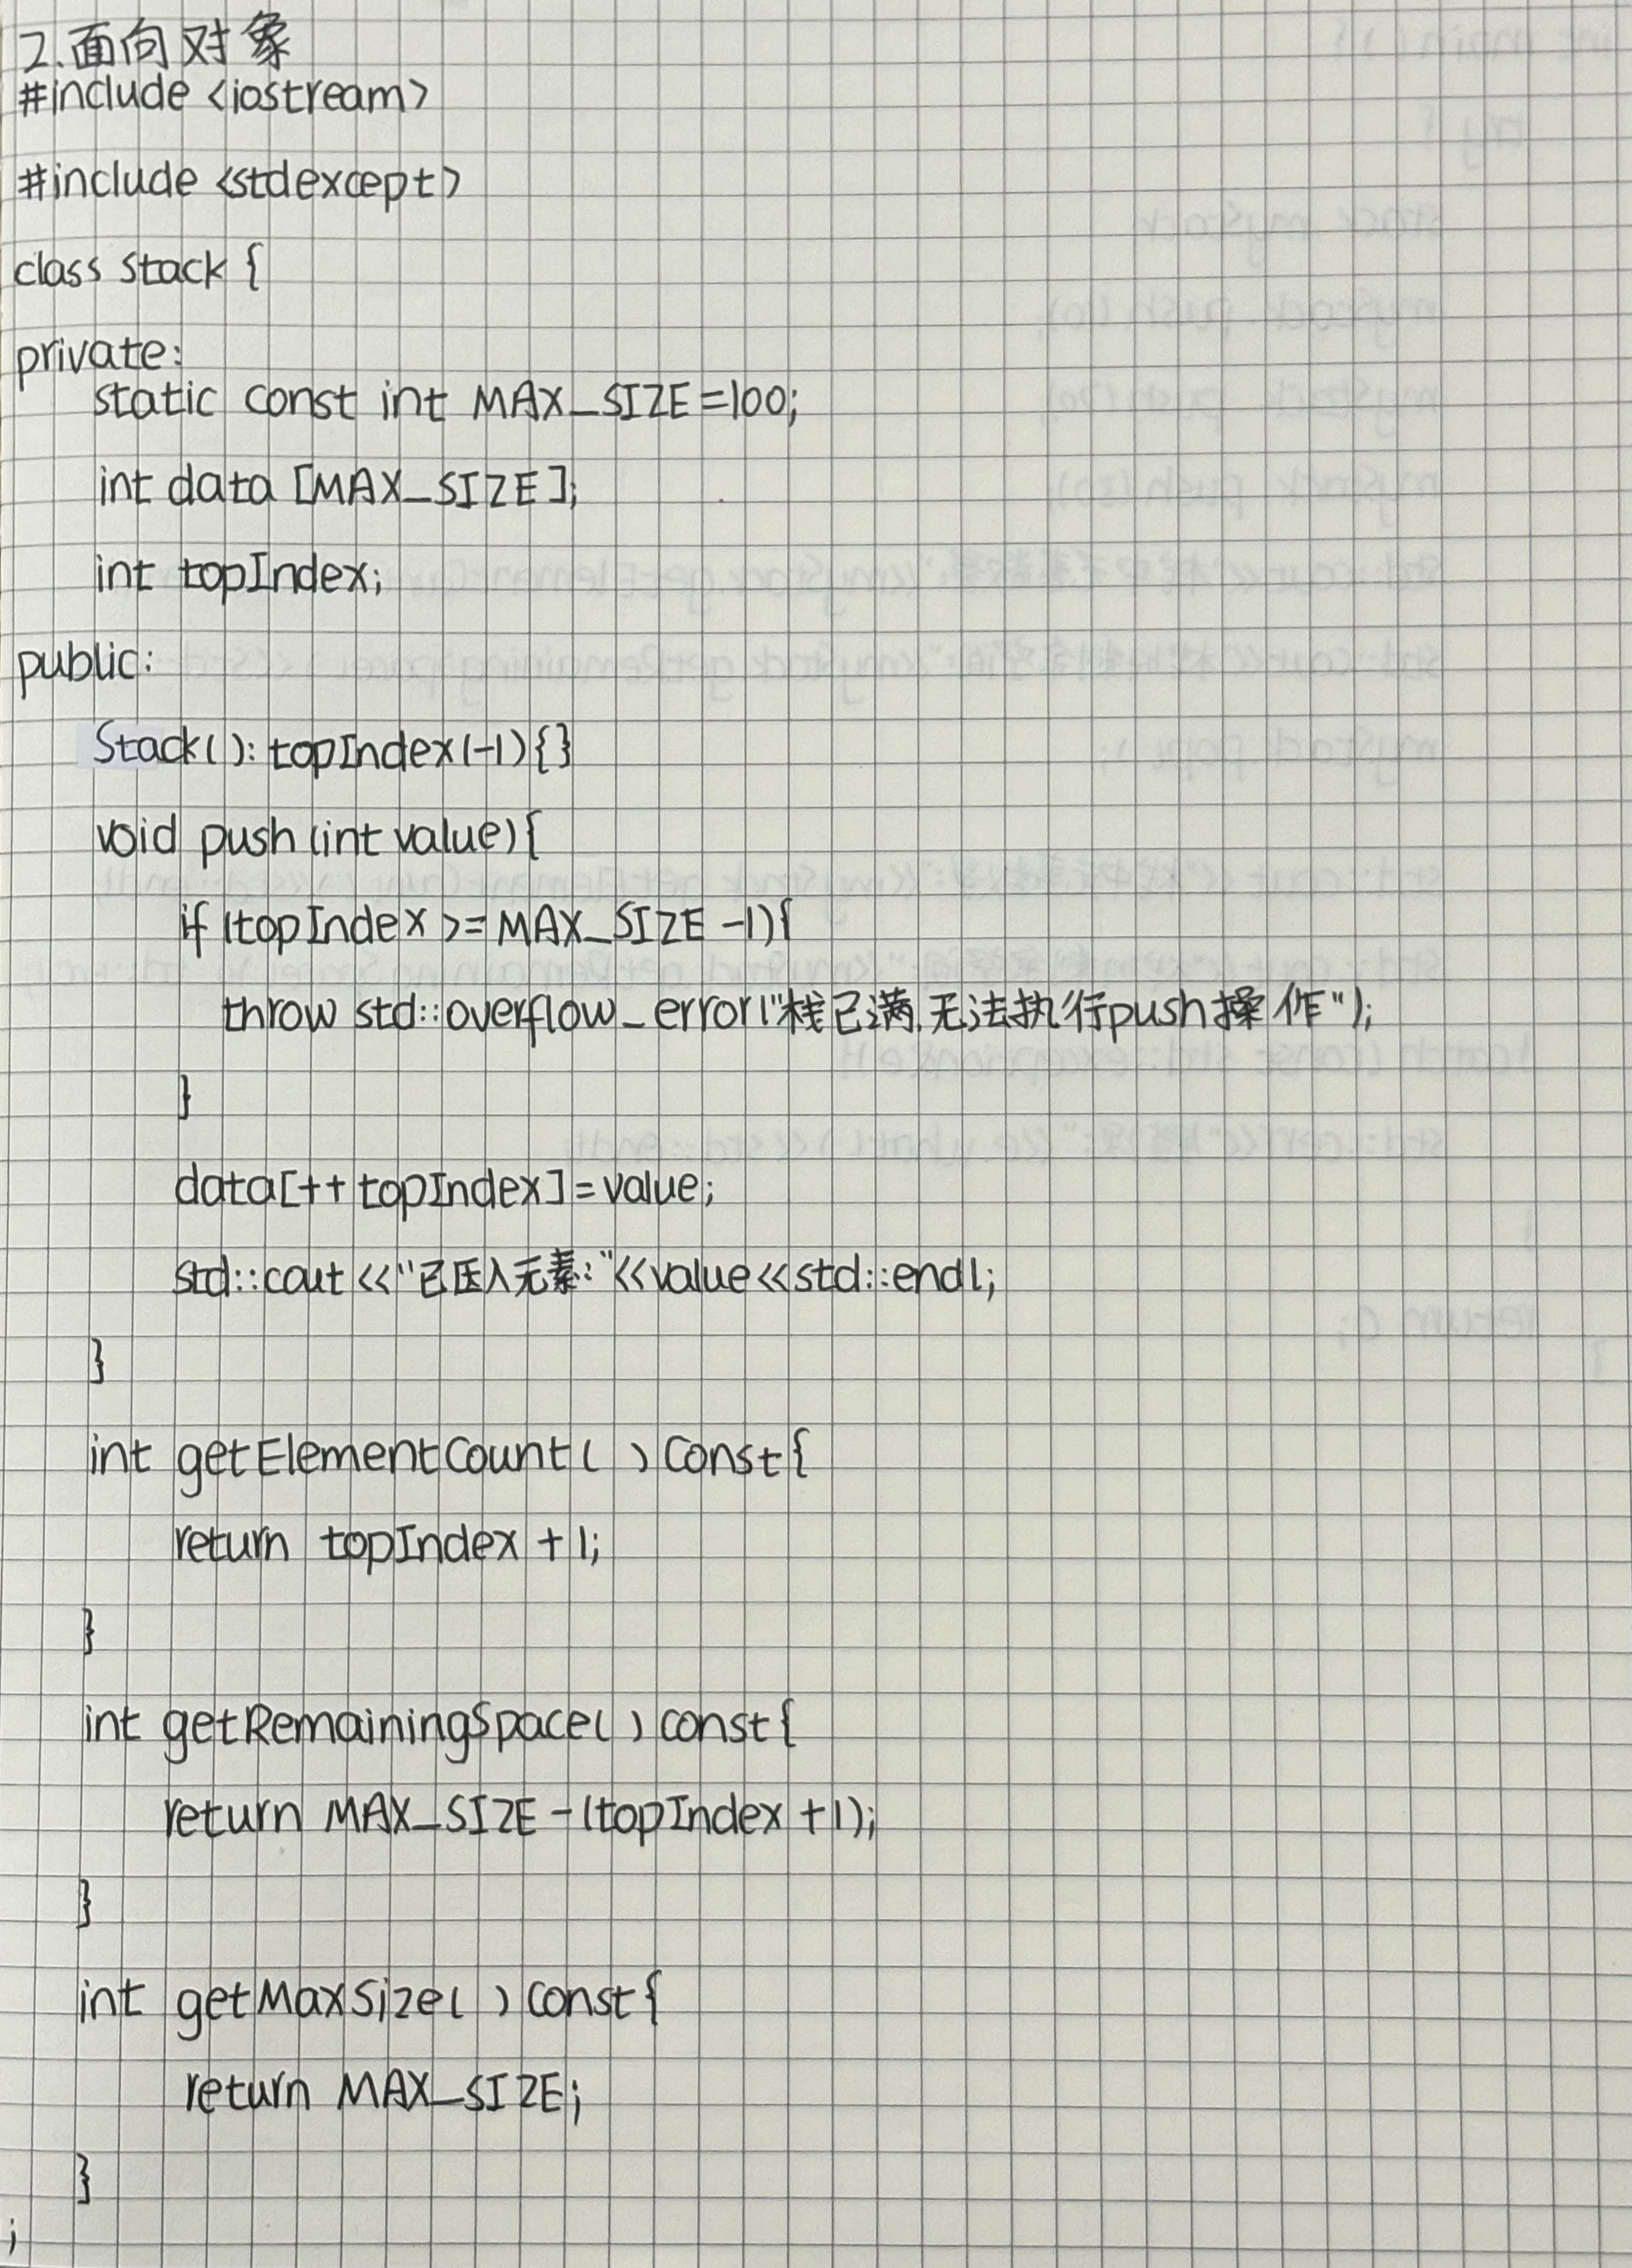 2.面向对象
#include <iostream>
#include <stdexcept>
class Stack {
private:
static const int MAX_SIZE=100;
int data [MAX_SIZE];
int topIndex;
public:
Stack(): topIndex(-1){}
void push (int value){
if (topIndex >= MAX_SIZE -1){
throw std::overflow_error("栈已满,无法执行push操作");
}
data[++topIndex]=value;
std::cout <<"已压入元素:"<<value<<std::endl;
}
int getElementCount( ) const{
return topIndex +1;
}
int getRemainingSpace( ) const{
return MAX_SIZE -(topIndex +1);
}
int getMaxSize( ) const{
return MAX_SIZE;
}
;